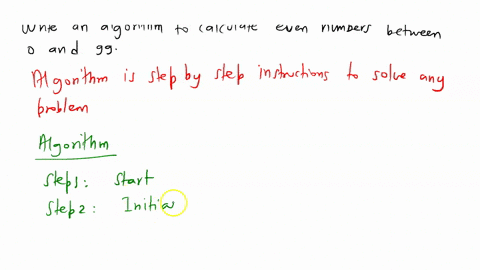 Write an algorithm to calculate even numbers between
0 and 99.
Algorithm is step by step instructions to solve any
problem
Algorithm
Step1: Start
Step2: Initia